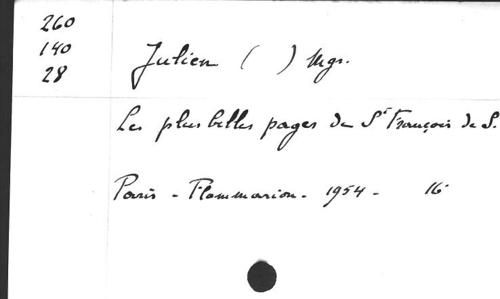 260
140
28
Julien ( ) Mgr.
Les plus belles pages de St François de S.
Paris - Flammarion - 1954 - 16